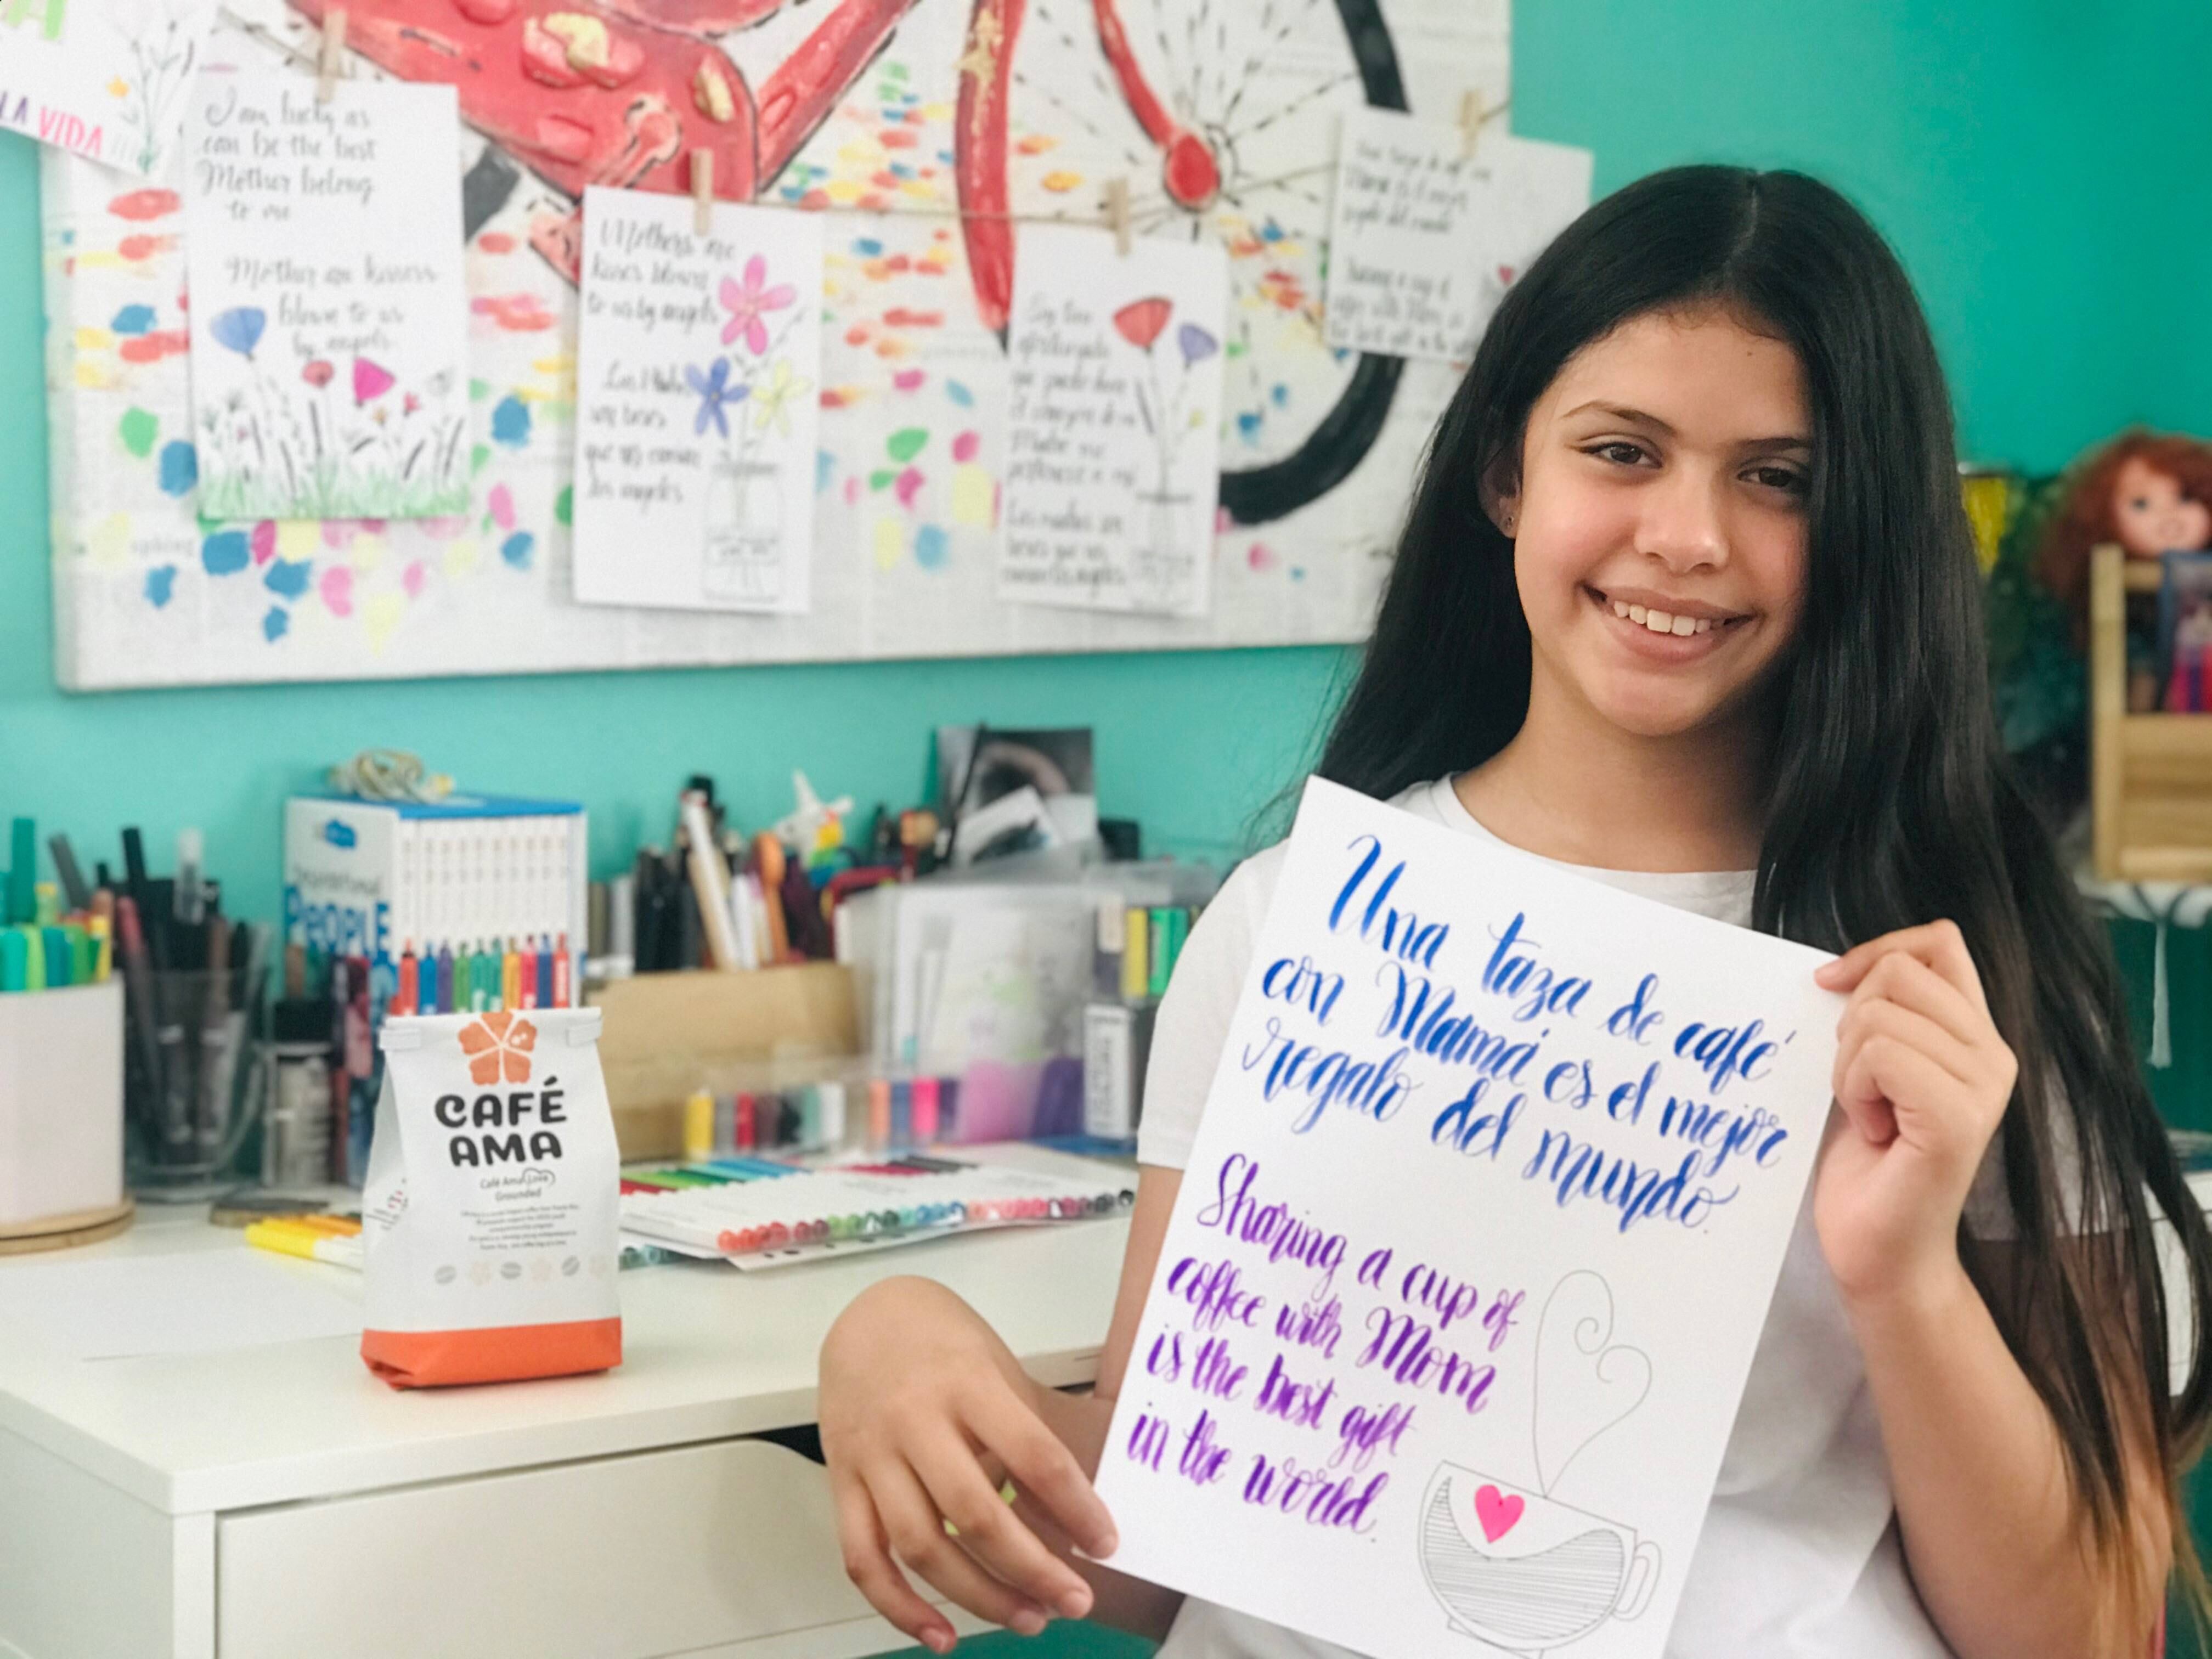 LA VIDA
I am lucky as
can be the best
Mother belong
to me
Mother are kisses
blown to us
by angels.
Mothers are
kisses blown
to us by angels
Las Madres
son besos
que nos envían
los angeles
Soy tan
afortunada
que puede decir
Madre me
pertenece a mi
Las madres son
besos que nos
Una taza de café
con Mamá es el mejor
regalo del mundo
Sharing a cup of
coffee with Mom, is
the best gift in the
PEOPLE
CAFÉ
AMA
Café Ama Love
Grounded
Una taza de café
con Mamá es el mejor
regalo del mundo.
Sharing a cup of
coffee with Mom
is the best gift
in the world.